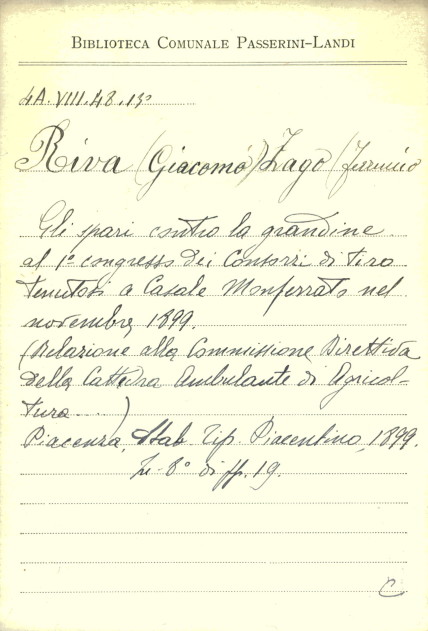 BIBLIOTECA COMUNALE PASSERINI-LANDI
4A.VIII.48.15°
Riva (Giacomo) Zago (Ferruccio
Gli spari contro la grandine
al 1° congresso dei Consorzi di tiro
tenutosi a Casale Monferrato nel
novembre 1899.
(Relazione alla Commissione Direttiva
della Cattedra Ambulante di Agricol-
tura....)
Piacenza, Stab. Tip. Piacentino, 1899.
In-8° di pp. 19.
C